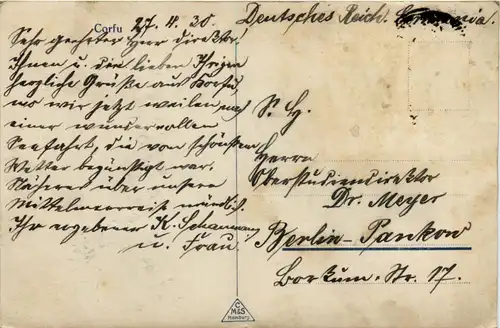 Corfu 27. 4. 30.
Sehr geehrter Herr Direktor!
Ihnen u. den lieben Ihrigen
herzliche Grüße aus Korfu,
wo wir jetzt weilen nach
einer wundervollen
Seefahrt, die vom schönsten
Wetter begünstigt war.
Näheres über unsere
Mittelmeerreise mündlich.
Ihr ergebener K.
u. Frau.
Deutsches Reich.
S. H.
Herrn
Oberstudiendirektor
Dr. Meyer
Berlin-Pankow
Borkum-Str. 17.
C
M&S
Hamburg